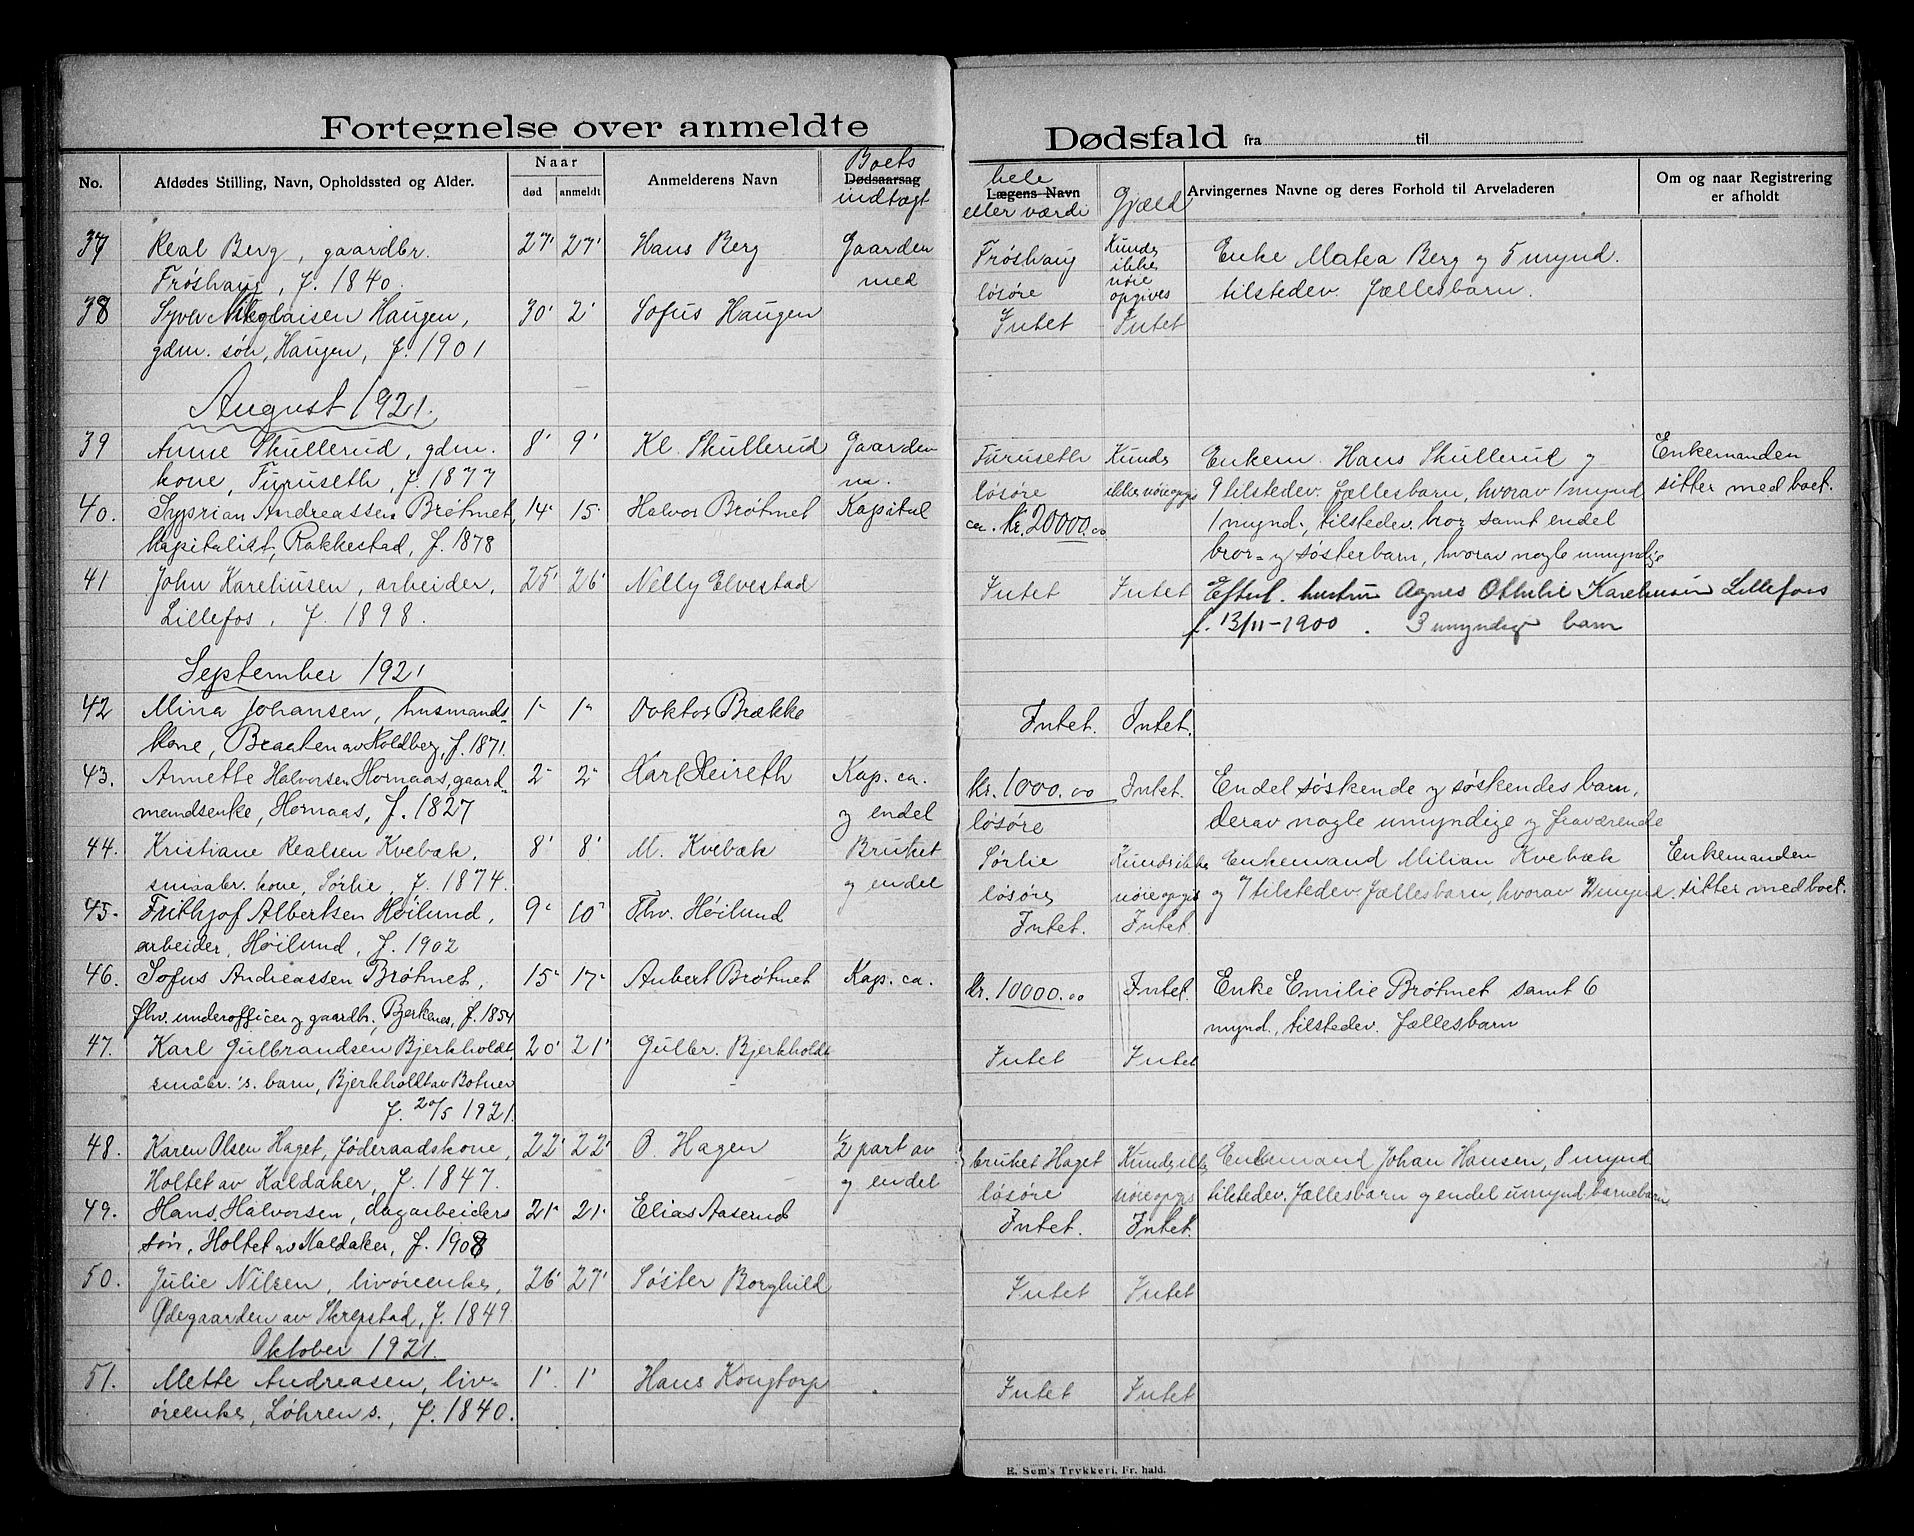 Fortegnelse over anmeldte Dødsfald fra til
No. Afdødes Stilling, Navn, Opholdssted og Alder. Naar død anmeldt Anmelderens Navn Boets Dødsaarsag indtægt
hele Lægens Navn eller værdi Gjæld Arvingernes Navne og deres Forhold til Arveladeren Om og naar Registrering er afholdt
37 Real Berg, gaardbr. 27' 27' Hans Berg Gaarden Frøshaug Kunde Enke Matea Berg og 5 mynd.
Frøshaug, f. 1840. med løsøre ikke nøie opgives tilstedev. fællesbarn.
38 Syver Nikolaisen Haugen, 30' 2' Sofus Haugen Intet Intet
gdm. søn, Haugen, f. 1901
August 1921.
39 Anne Skullerud, gdm. 8' 9' Kl. Skullerud Gaarden Furuseth Kunde Enkem. Hans Skullerud og Enkemanden
kone, Furuseth, f. 1877 m. løsøre ikke nøie opgis 9 tilstedev. fællesbarn, hvorav 1 mynd sitter med boet.
40. Syprian Andreassen Brøtmet, 14" 15" Halvor Brøtmet Kapital ca. kr. 20000.00 1 mynd., tilstedev. bror samt endel
kapitalist, Rakkestad, f. 1878 bror- og søsterbarn, hvorav nogle umyndige
41 John Kareliusen, arbeider, 25' 26' Nelly Elvestad Intet Intet Efterl. hustru Agnes Othilie Kareliusen Lillefoss
Lillefos, f. 1898. f. 13/11-1900. 3 umyndige barn
September 1921
42 Mina Johansen, husmands- 1" 1" Doktor Brække Intet. Intet.
kone, Braaten av Holdberg, f. 1871.
43. Annette Halvorsen Hornaas, gaard- 2" 2" Karl Heireth Kap. ca. kr. 1000.00 Intet. Endel søskende og søskendes barn,
mandsenke, Hornaas, f. 1827 og endel løsøre derav nogle umyndige og fraværende
44. Kristiane Realsen Kvebæk, 8' 8' M. Kvebæk Bruket Sørlie Kunde ikke Enkemand Milian Kvebæk Enkemanden
smaabr. kone, Sørlie, f. 1874. og endel løsøre nøie opgis og 7 tilstedev. fællesbarn, hvorav 2 mynd. sitter med boet.
45. Frithjof Albertsen Høilund, 9" 10" Thv. Høilund Intet. Intet.
arbeider, Høilund, f. 1902
46. Sofus Andreassen Brøtmet, 15" 17" Aubert Brøtmet Kap. ca. kr. 10000.00 Intet. Enke Emilie Brøtmet samt 6
fhv. underofficer og gaardbr., Bjerkenes, f. 1854 mynd., tilstedev. fællesbarn
47. Karl Gulbrandsen Bjerkholdt, 20' 21' Gulbr. Bjerkholdt Intet Intet
småbr.'s. barn, Bjerkholdt av Botner
f. 20/5 1921.
48. Karen Olsen Haget, føderaadskone, 22' 22' O. Hagen 1/2 part av bruket Haget Kunde ikke Enkemand Johan Hansen, 8 mynd
Holtet av Kaldaker, f. 1847. og endel løsøre nøie opgis tilstedev. fællesbarn og endel umynd. barnebarn
49. Hans Halvorsen, dagarbeiders 21" 21" Elias Aaserud Intet. Intet.
søn, Holtet av Kaldaker, f. 1908
50. Julie Nilsen, livøreenke, 26' 27' Søster Borghild Intet Intet
Ødegaarden av Skrepstad, f. 1849
Oktober 1921.
51. Mette Andreasen, liv- 1' 1' Hans Kongtorp Intet Intet
øreenke, Løhren s., f. 1840.
E. Sem's Trykkeri, Fr. hald.